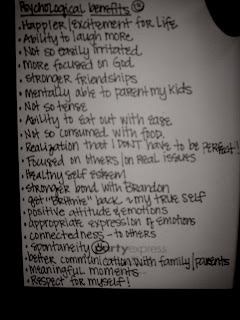 Psychological benefits
• Happier/excitement for Life
• Ability to laugh more
• Not so easily irritated
• more focused on God
• stronger friendships
• mentally able to parent my kids
• Not so tense
• Ability to eat out with ease
• Not so consumed with food.
• Realization that I DON'T have to be perfect!
• Focused on others/on real issues
• Healthy self esteem
• stronger bond with Brandon
• get "Brittnie" back & my true self
• positive attitude & emotions
• appropriate expression of emotions
• connectedness - to others
• spontaneity
• better communication with family/parents
• meaningful moments
• Respect for myself!